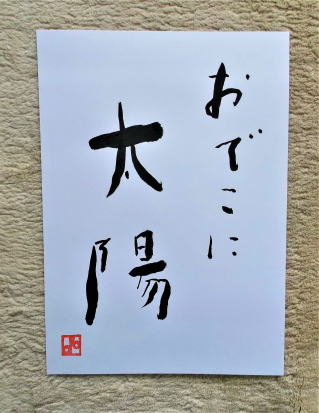 おでこに
太陽